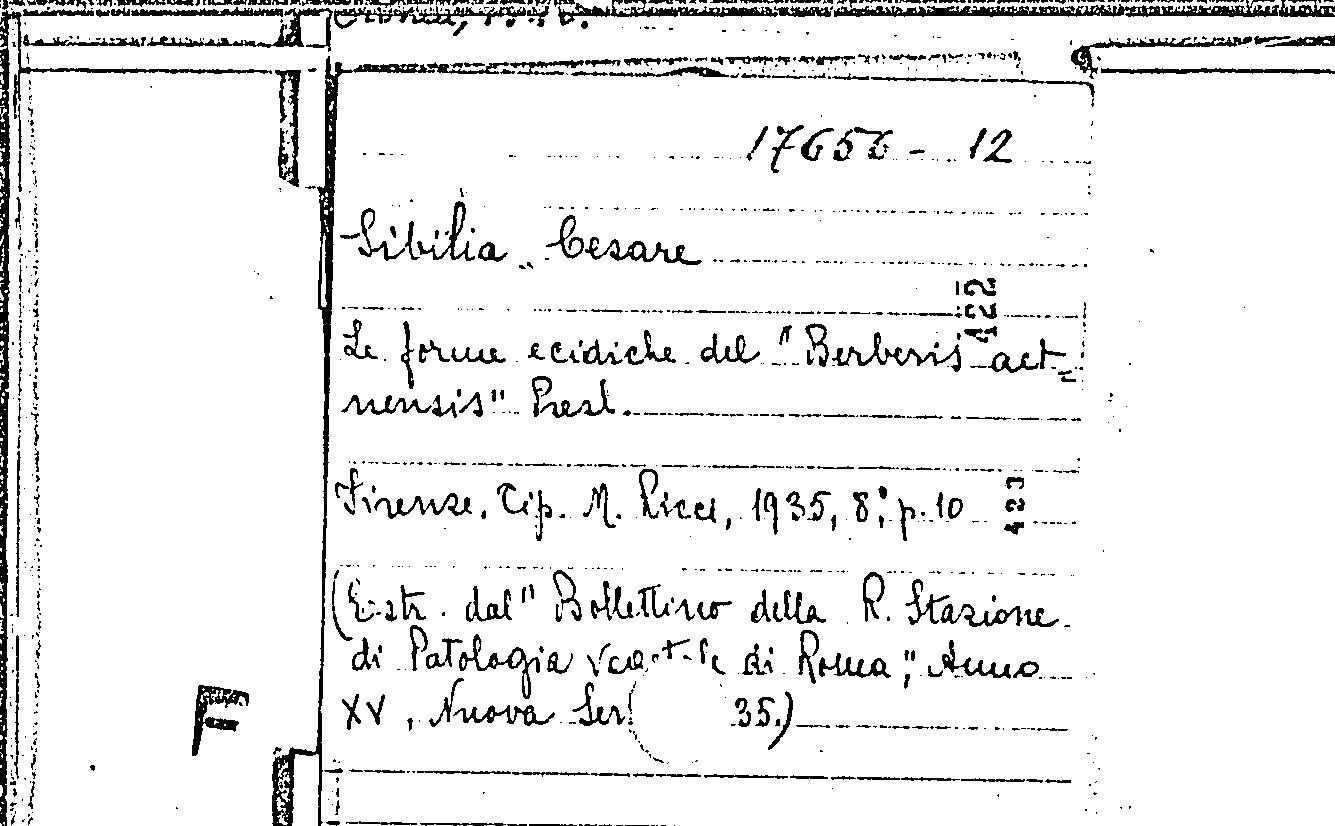 17656 - 12
Sibilia Cesare
422
Le forme ecidiche del "Berberis aet-
nensis" Presl.
Firenze, Tip. M. Ricci, 1935, 8°, p. 10
423
(Estr. dal "Bollettino della R. Stazione
di Patologia vegetale di Roma", Anno
XV, Nuova Ser. 35.)
F